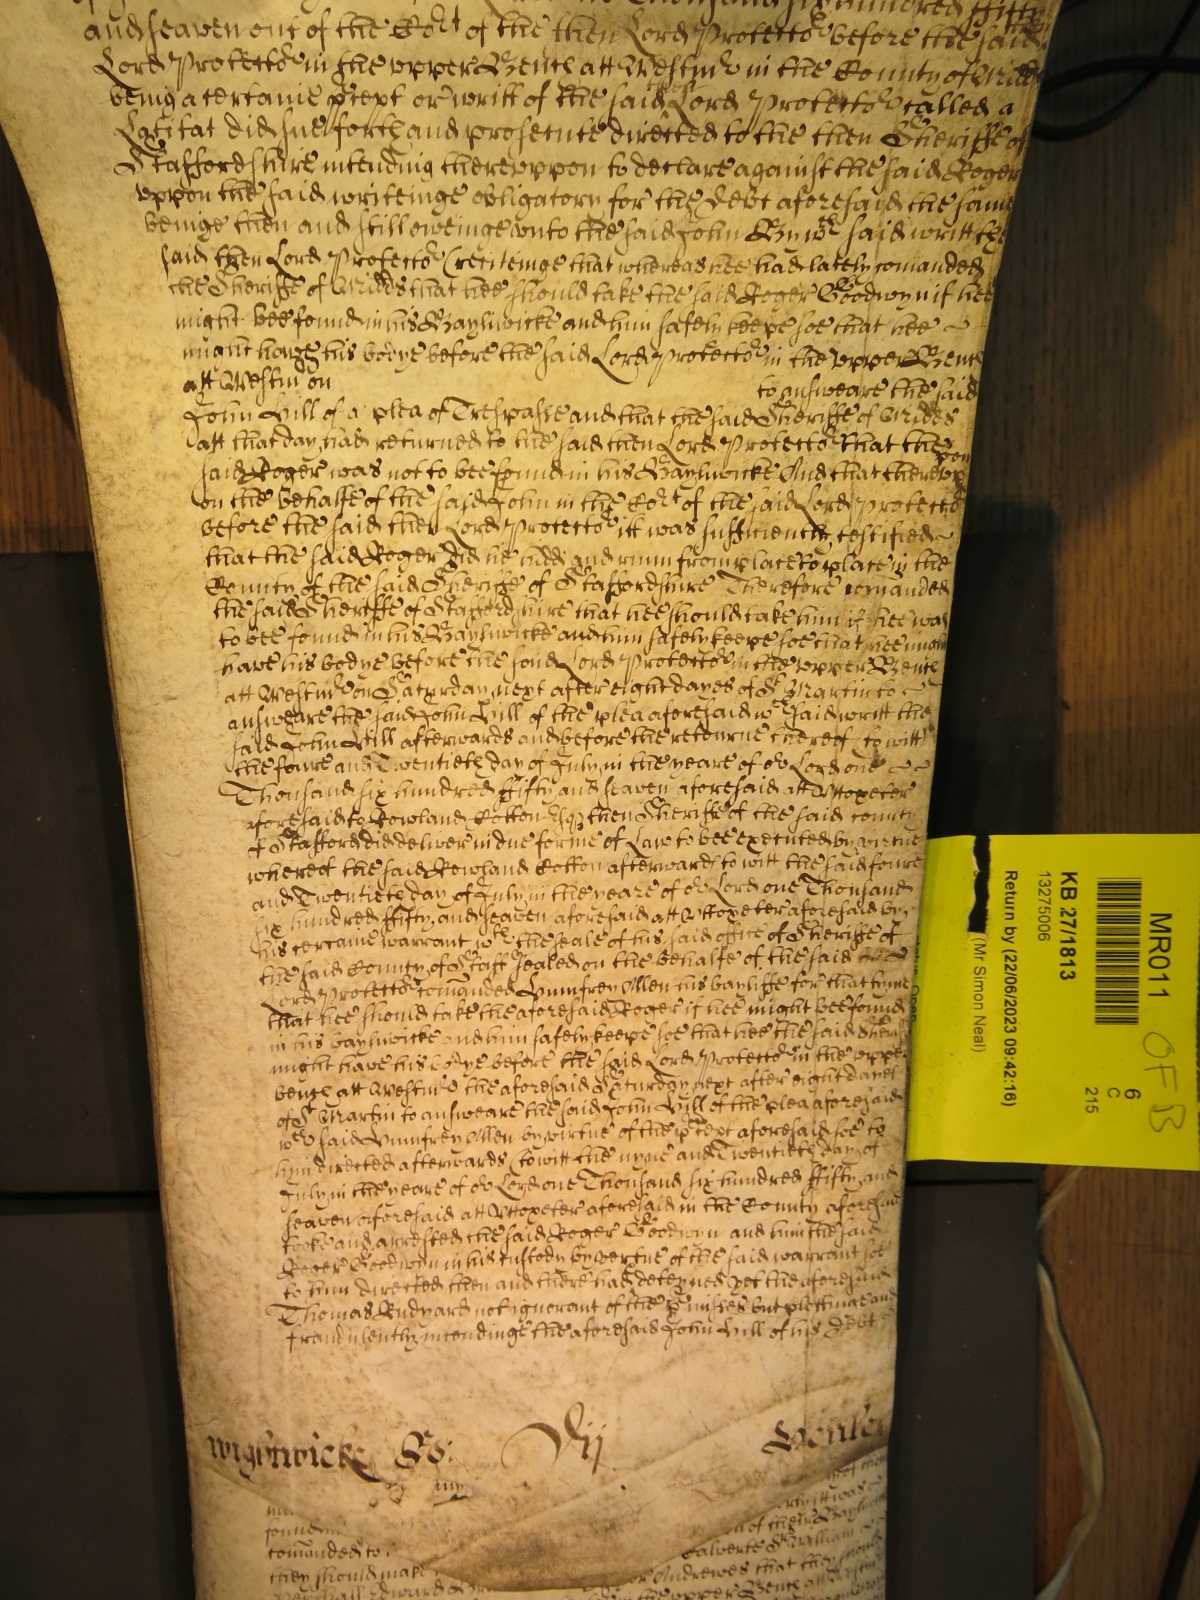 Thousand six hundred ffifty
and seaven out of the Cort of the then Lord Protector before the said
Lord Protector in the upper Bench att Westmr in the County of Midd
being a certaine pcept or writt of the said Lord Protector called a
Latitat did sue forth and prosecute directed to the then Sheriffe of
Staffordshire intending thereuppon to declare against the said Roger
uppon the said writeinge obligatory for the debt aforesaid the same
beinge then and still oweinge unto the said John By wch said writt the
said then Lord Protector reciteinge that whereas hee had lately comanded
the Sheriffe of Midds that hee should take the said Roger Goodwyn if hee
might bee found in his Bayliwicke and him safely keepe soe that hee
might have his bodye before the said Lord Protector in the upper Bench
att Westmr on to answeare the said
John Hill of a plea of Trespasse and that the said Sheriffe of Midds
att that day had returned to the said then Lord Protector that the
said Roger was not to bee found in his Bayliwicke And that thereuppon
on the behalfe of the said John in the Cort of the said Lord Protector
before the said then Lord Protector itt was sufficiently testified
that the said Roger did lie hidd and runn from place to place in the
County of the said Sheriffe of Staffordshire Therefore comanded
the said Sheriffe of Staffordshire that hee should take him if hee was
to bee found in his Bayliwicke and him safely keepe soe that hee might
have his bodye before the said Lord Protector in the upper Bench
att Westmr on Saturday next after eight dayes of St Martin to
answeare the said John Hill of the plea aforesaid wch said writt the
said John Hill afterwards and before the retourne thereof to witt
the foure and Twentieth day of July in the yeare of or Lord one
Thousand six hundred ffifty and seaven aforesaid att Uttoxeter
aforesaid to Rowland Cotton Esq then Sheriffe of the said county
of Stafford did deliver in due forme of Law to bee executed by virtue
whereof the said Rowland Cotton afterwards to witt the said foure
and Twentieth day of July in the yeare of or Lord one Thousand
six hundred ffifty and seaven aforesaid att Uttoxeter aforesaid by
his certaine warrant wth the seale of his said office of Sheriffe of
the said County of Staff sealed on the behalfe of the said
Lord Protector comanded Humfrey Allen his bayliffe for that tyme
that hee should take the aforesaid Roger if hee might bee found
in his bayliwicke and him safely keepe soe that hee the said Sheriffe
might have his bodye before the said Lord Protector in the upper
bench att Westmr the aforesaid Saturday next after eight dayes
of St Martin to answeare the said John Hill of the plea aforesaid
wch said Humfrey Allen by virtue of the pcept aforesaid soe to
him directed afterwards to witt the nyne and Twentieth day of
July in the yeare of or Lord one Thousand six hundred ffifty and
seaven aforesaid att Uttoxeter aforesaid in the County aforesaid
tooke and arrested the said Roger Goodwyn and him the said
Roger Goodwyn in his custody by vertue of the said warrant soe
to him directed then and there had deteyned yet the aforesaid
Thomas Rudyard not ignorant of the pmisses but plottinge and
fraudulently intendinge the aforesaid John Hill of his Debt
Wightwicke Vij
found
comanded to
they should make
itt was
of their Bayliw
Calverte & William
Andrewes that they should
the upper Bench att Westm
MR011
KB 27/1813
13275006
6
C
215
Return by (22/06/2023 09:42:16)
(Mr Simon Neal)
OFB